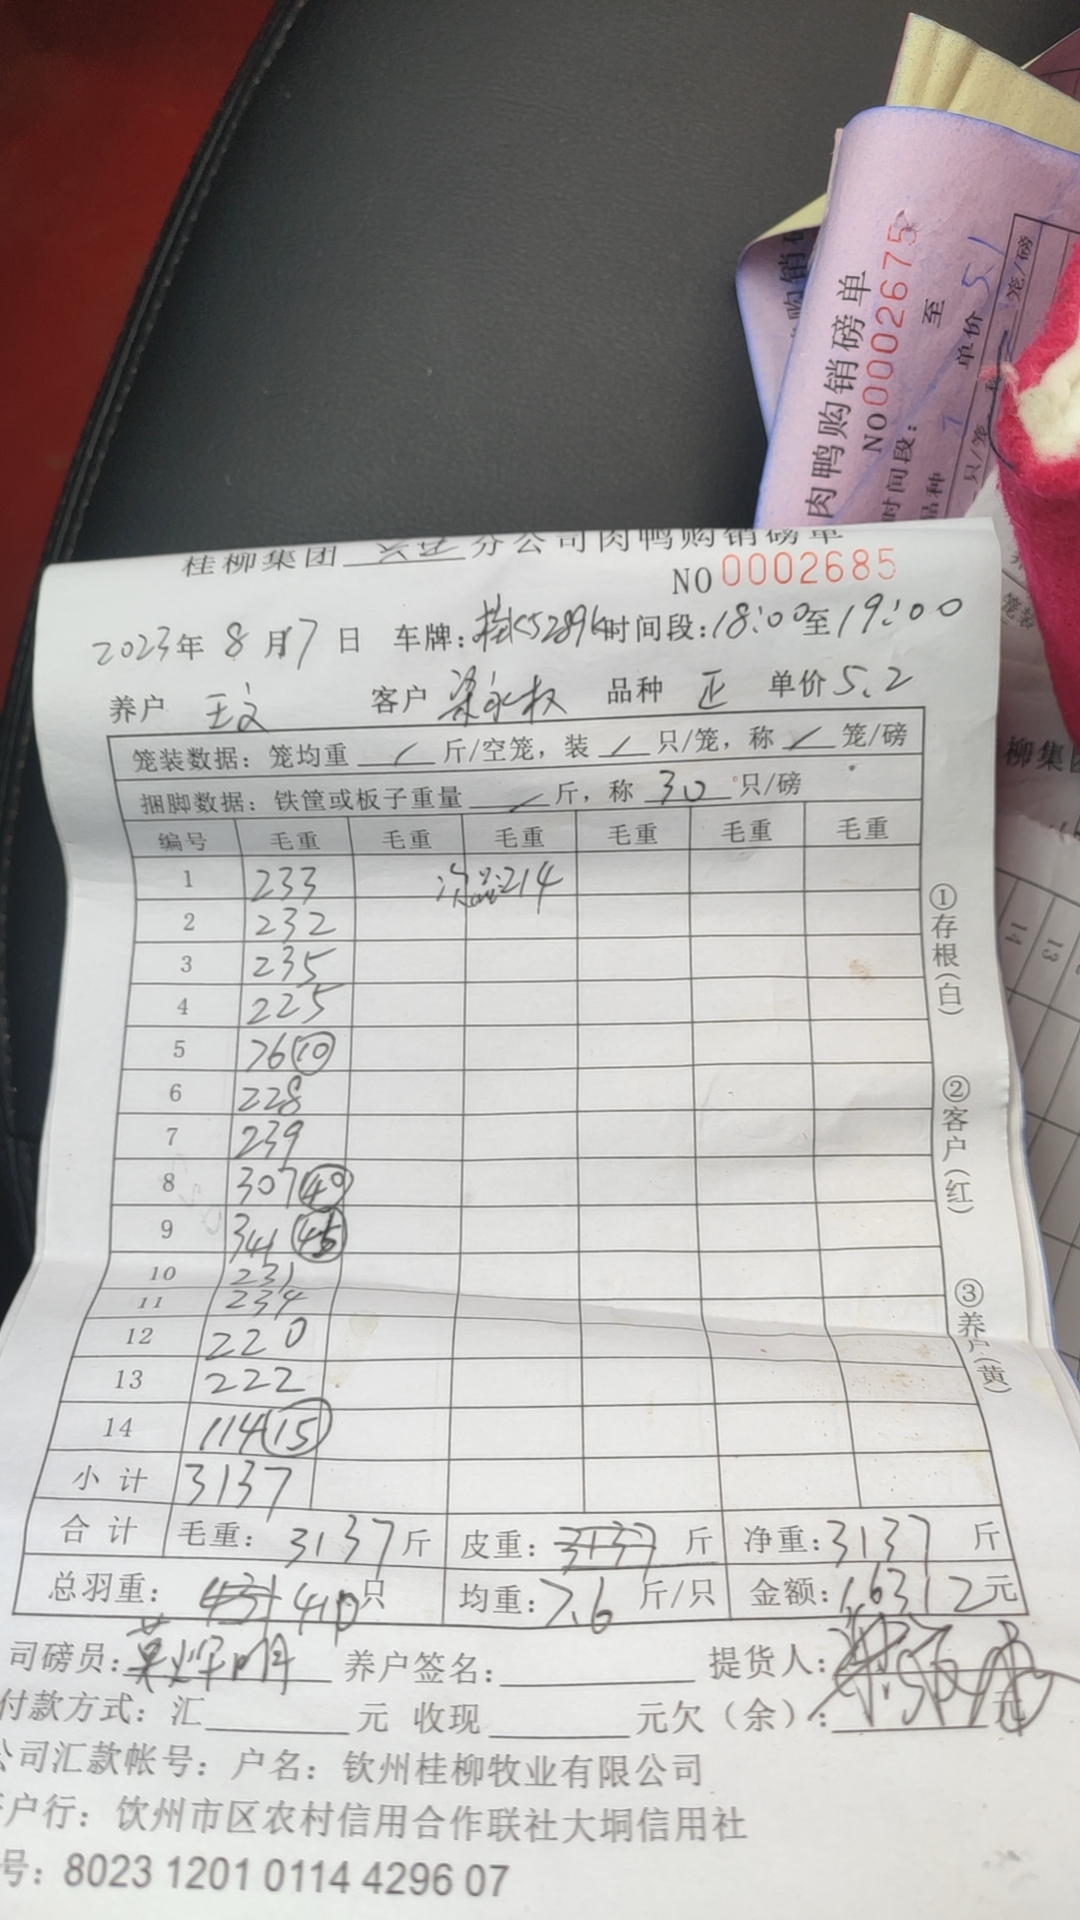 桂柳集团 分公司肉鸭购销磅单
NO 0002685
2023年 8月7日 车牌: 时间段:18:00至19:00
养户 王文 客户 梁永权 品种 正 单价 5.2
笼装数据: 笼均重 / 斤/空笼, 装 / 只/笼, 称 / 笼/磅
捆脚数据: 铁筐或板子重量 / 斤, 称 30 只/磅
编号 毛重 毛重 毛重 毛重 毛重 毛重
1 233 214
2 232
3 235
4 225
5 76 10
6 228
7 239
8 307 40
9 341 45
10 231
11 234
12 220
13 222
14 114 15
小计 3137
合计 毛重: 3137斤 皮重: 3137 斤 净重: 3137 斤
总羽重: 431 410只 均重: 7.6 斤/只 金额: 16312元
司磅员: 养户签名: 提货人:
付款方式: 汇 元 收现 元欠(余): 元
公司汇款帐号: 户名: 钦州桂柳牧业有限公司
户行: 饮州市区农村信用合作联社大垌信用社
号: 8023 1201 0114 4296 07
①存根(白)
②客户(红)
③养户(黄)
肉鸭购销磅单
NO 0002675
时间段: 至
品种 单价 5.1
只/笼 笼/磅
柳集团
13
14